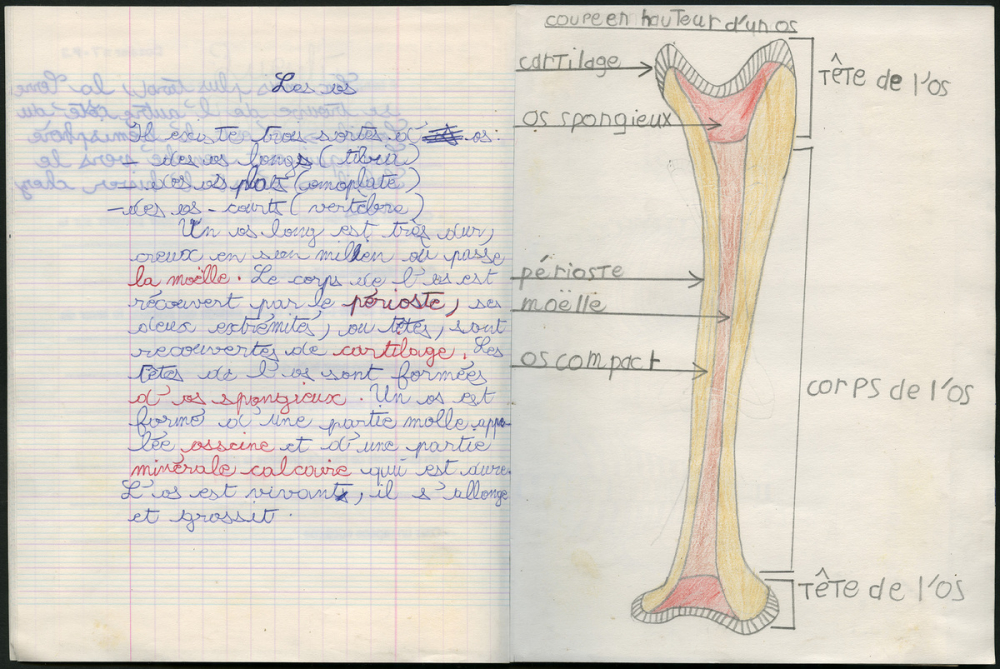 Les os
Il existe trois sortes d' os:
des os longs (tibia)
des os plats (omoplate)
- des os - courts (vertèbre)
Un os long est très dur,
creux en son milieu où passe
la moëlle. Le corps de l'os est
recouvert par le périoste, ses
deux extrémités, ou têtes, sont
recouvertes de cartilage. Les
têtes de l'os sont formées
d'os spongieux. Un os est
formé d'une partie molle appe-
lée osseine et d'une partie
minérale calcaire qui est dure
L'os est vivant, il s'allonge
et grossit.
coupe en hauteur d'un os
cartilage
Tête de l'os
os spongieux
périoste
moëlle
os compact
corps de l'os
Tête de l'os